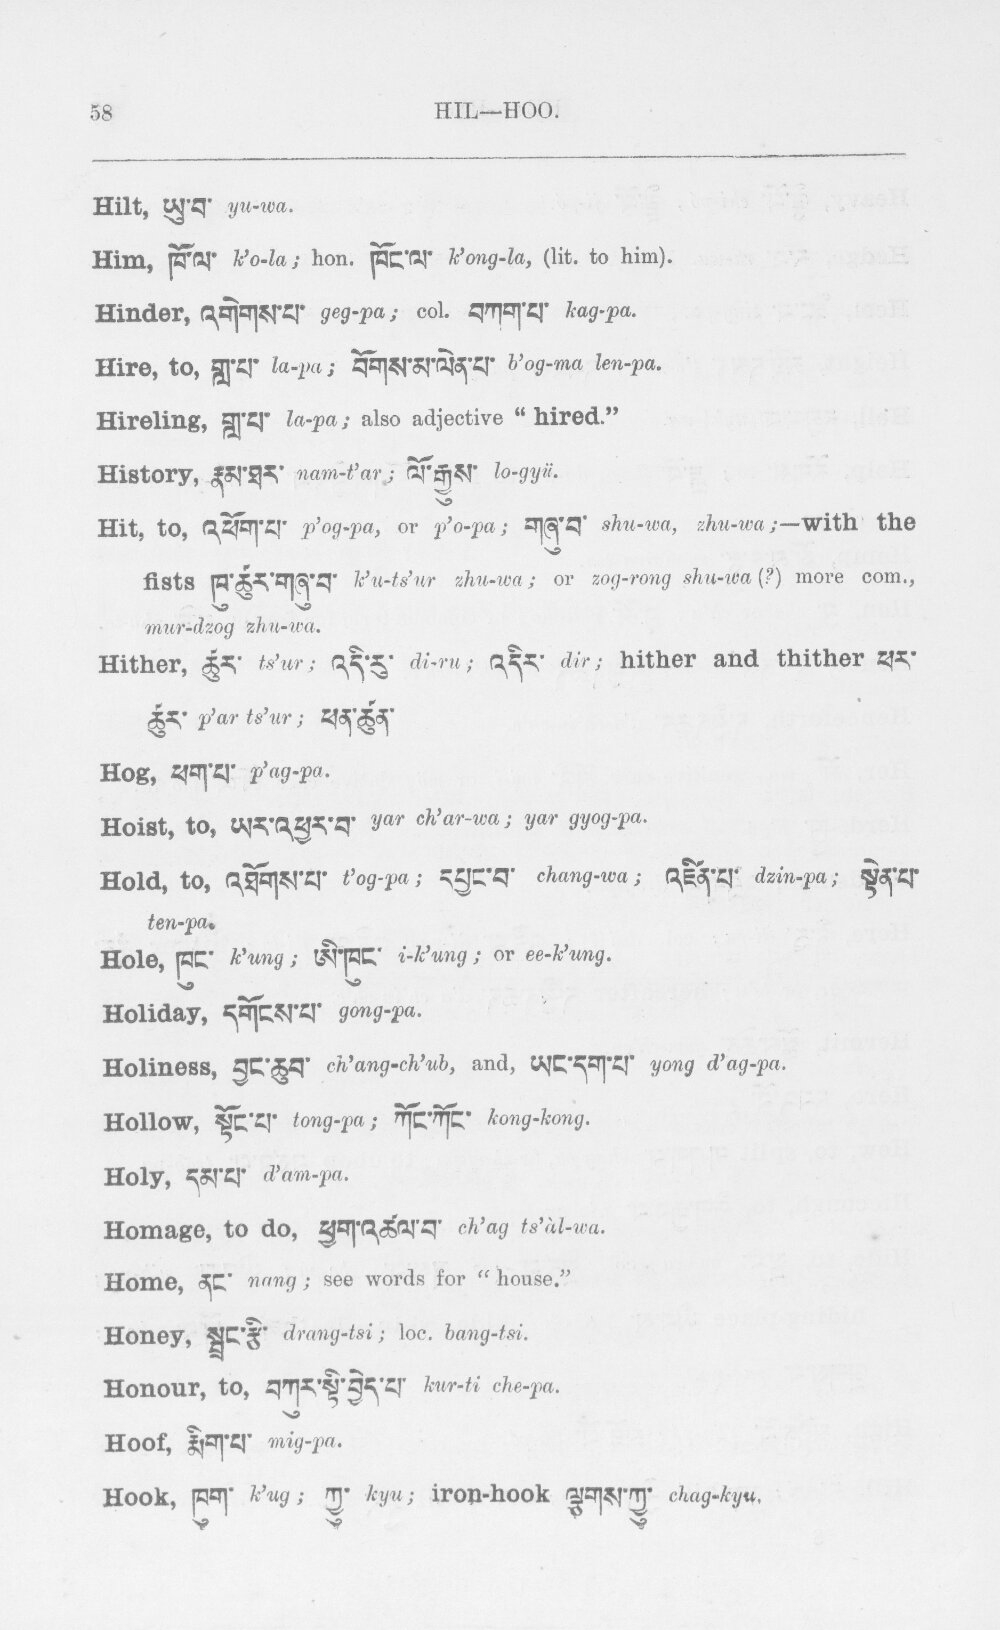 58 HIL—HOO.
Hilt, ཡུ་བ་ yu-wa.
Him, ཁོ་ལ་ k’o-la; hon. ཁོང་ལ་ k’ong-la, (lit. to him).
Hinder, འགེགས་པ་ geg-pa; col. བཀག་པ་ kag-pa.
Hire, to, གླ་པ་ la-pa; བོགས་མ་ལེན་པ་ b’og-ma len-pa.
Hireling, གླ་པ་ la-pa; also adjective “hired.”
History, རྣམ་ཐར་ nam-t’ar; ལོ་རྒྱུས་ lo-gyü.
Hit, to, འཕོག་པ་ p’og-pa, or p’o-pa; གཞུ་བ་ shu-wa, zhu-wa;—with the
fists ཁུ་ཚུར་གཞུ་བ་ k’u-ts’ur zhu-wa; or zog-rong shu-wa (?) more com.,
mur-dzog zhu-wa.
Hither, ཚུར་ ts’ur; འདི་རུ་ di-ru; འདིར་ dir; hither and thither ཕར་
ཚུར་ p’ar ts’ur; ཕན་ཚུན་
Hog, ཕག་པ་ p’ag-pa.
Hoist, to, ཡར་འཕྱར་བ་ yar ch’ar-wa; yar gyog-pa.
Hold, to, འཐོགས་པ་ t’og-pa; དཔྱང་བ་ chang-wa; འཛིན་པ་ dzin-pa; སྟེན་པ་
ten-pa.
Hole, ཁུང་ k’ung; ཨི་ཁུང་ i-k’ung; or ee-k’ung.
Holiday, དགོངས་པ་ gong-pa.
Holiness, བྱང་ཆུབ་ ch’ang-ch’ub, and, ཡང་དག་པ་ yong d’ag-pa.
Hollow, སྟོང་པ་ tong-pa; ཀོང་ཀོང་ kong-kong.
Holy, དམ་པ་ d’am-pa.
Homage, to do, ཕྱག་འཚལ་བ་ ch’ag ts’àl-wa.
Home, ནང་ nang; see words for “house.”
Honey, སྦྲང་རྩི་ drang-tsi; loc. bang-tsi.
Honour, to, བཀུར་སྟི་བྱེད་པ་ kur-ti che-pa.
Hoof, རྨིག་པ་ mig-pa.
Hook, ཁུག་ k’ug; ཀྱུ་ kyu; iron-hook ལྕགས་ཀྱུ་ chag-kyu.